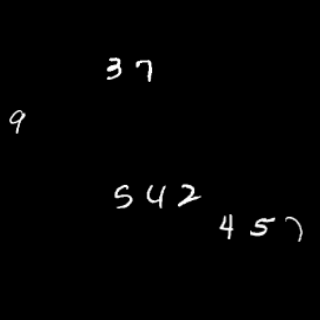 37
9
542
457